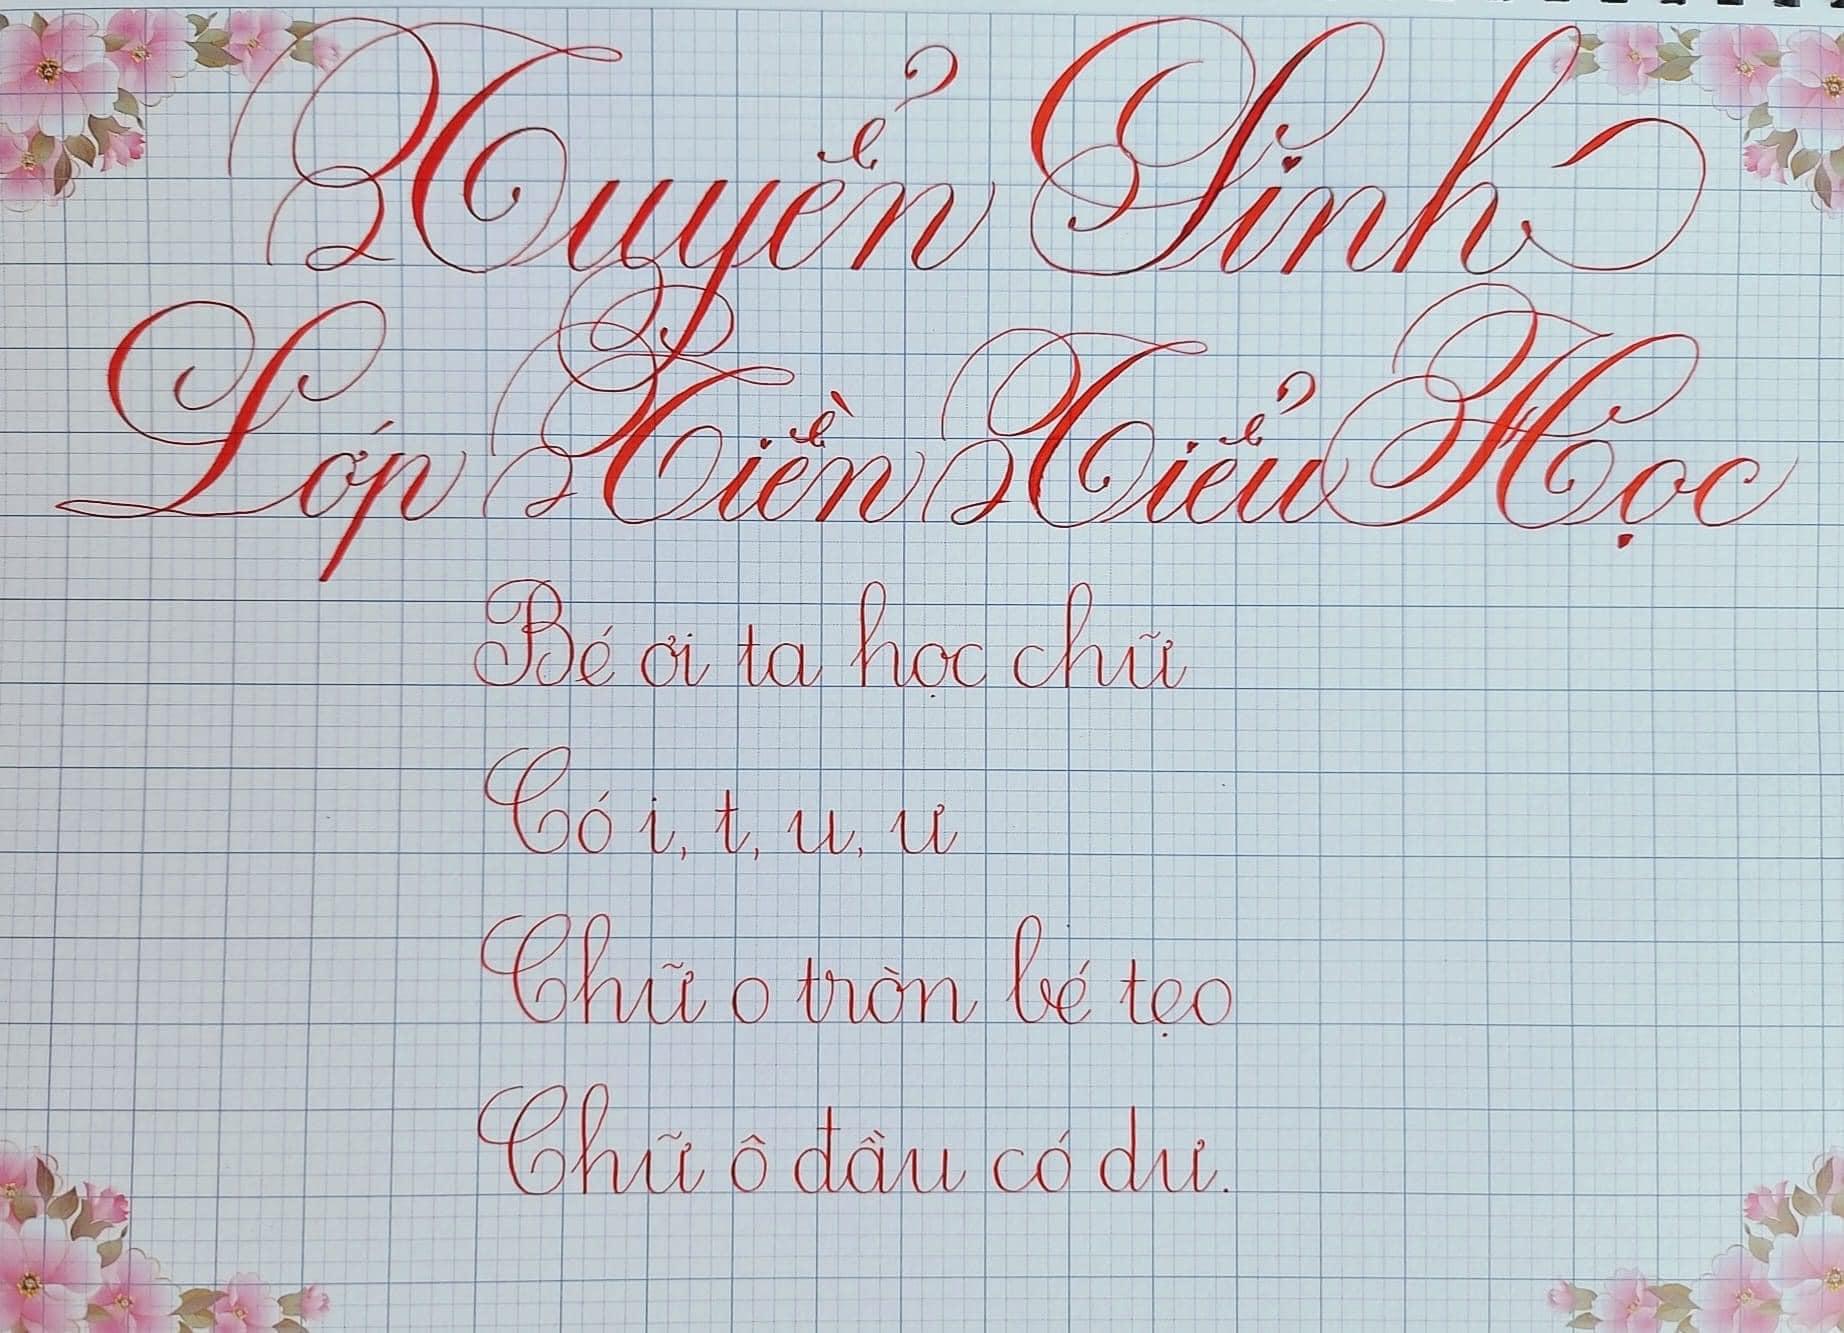 Tuyển Sinh
Lớp Tiền Tiểu Học
Bé ơi ta học chữ
Có i, t, u, ư
Chữ o tròn bé tẹo
Chữ ô đầu có dư.